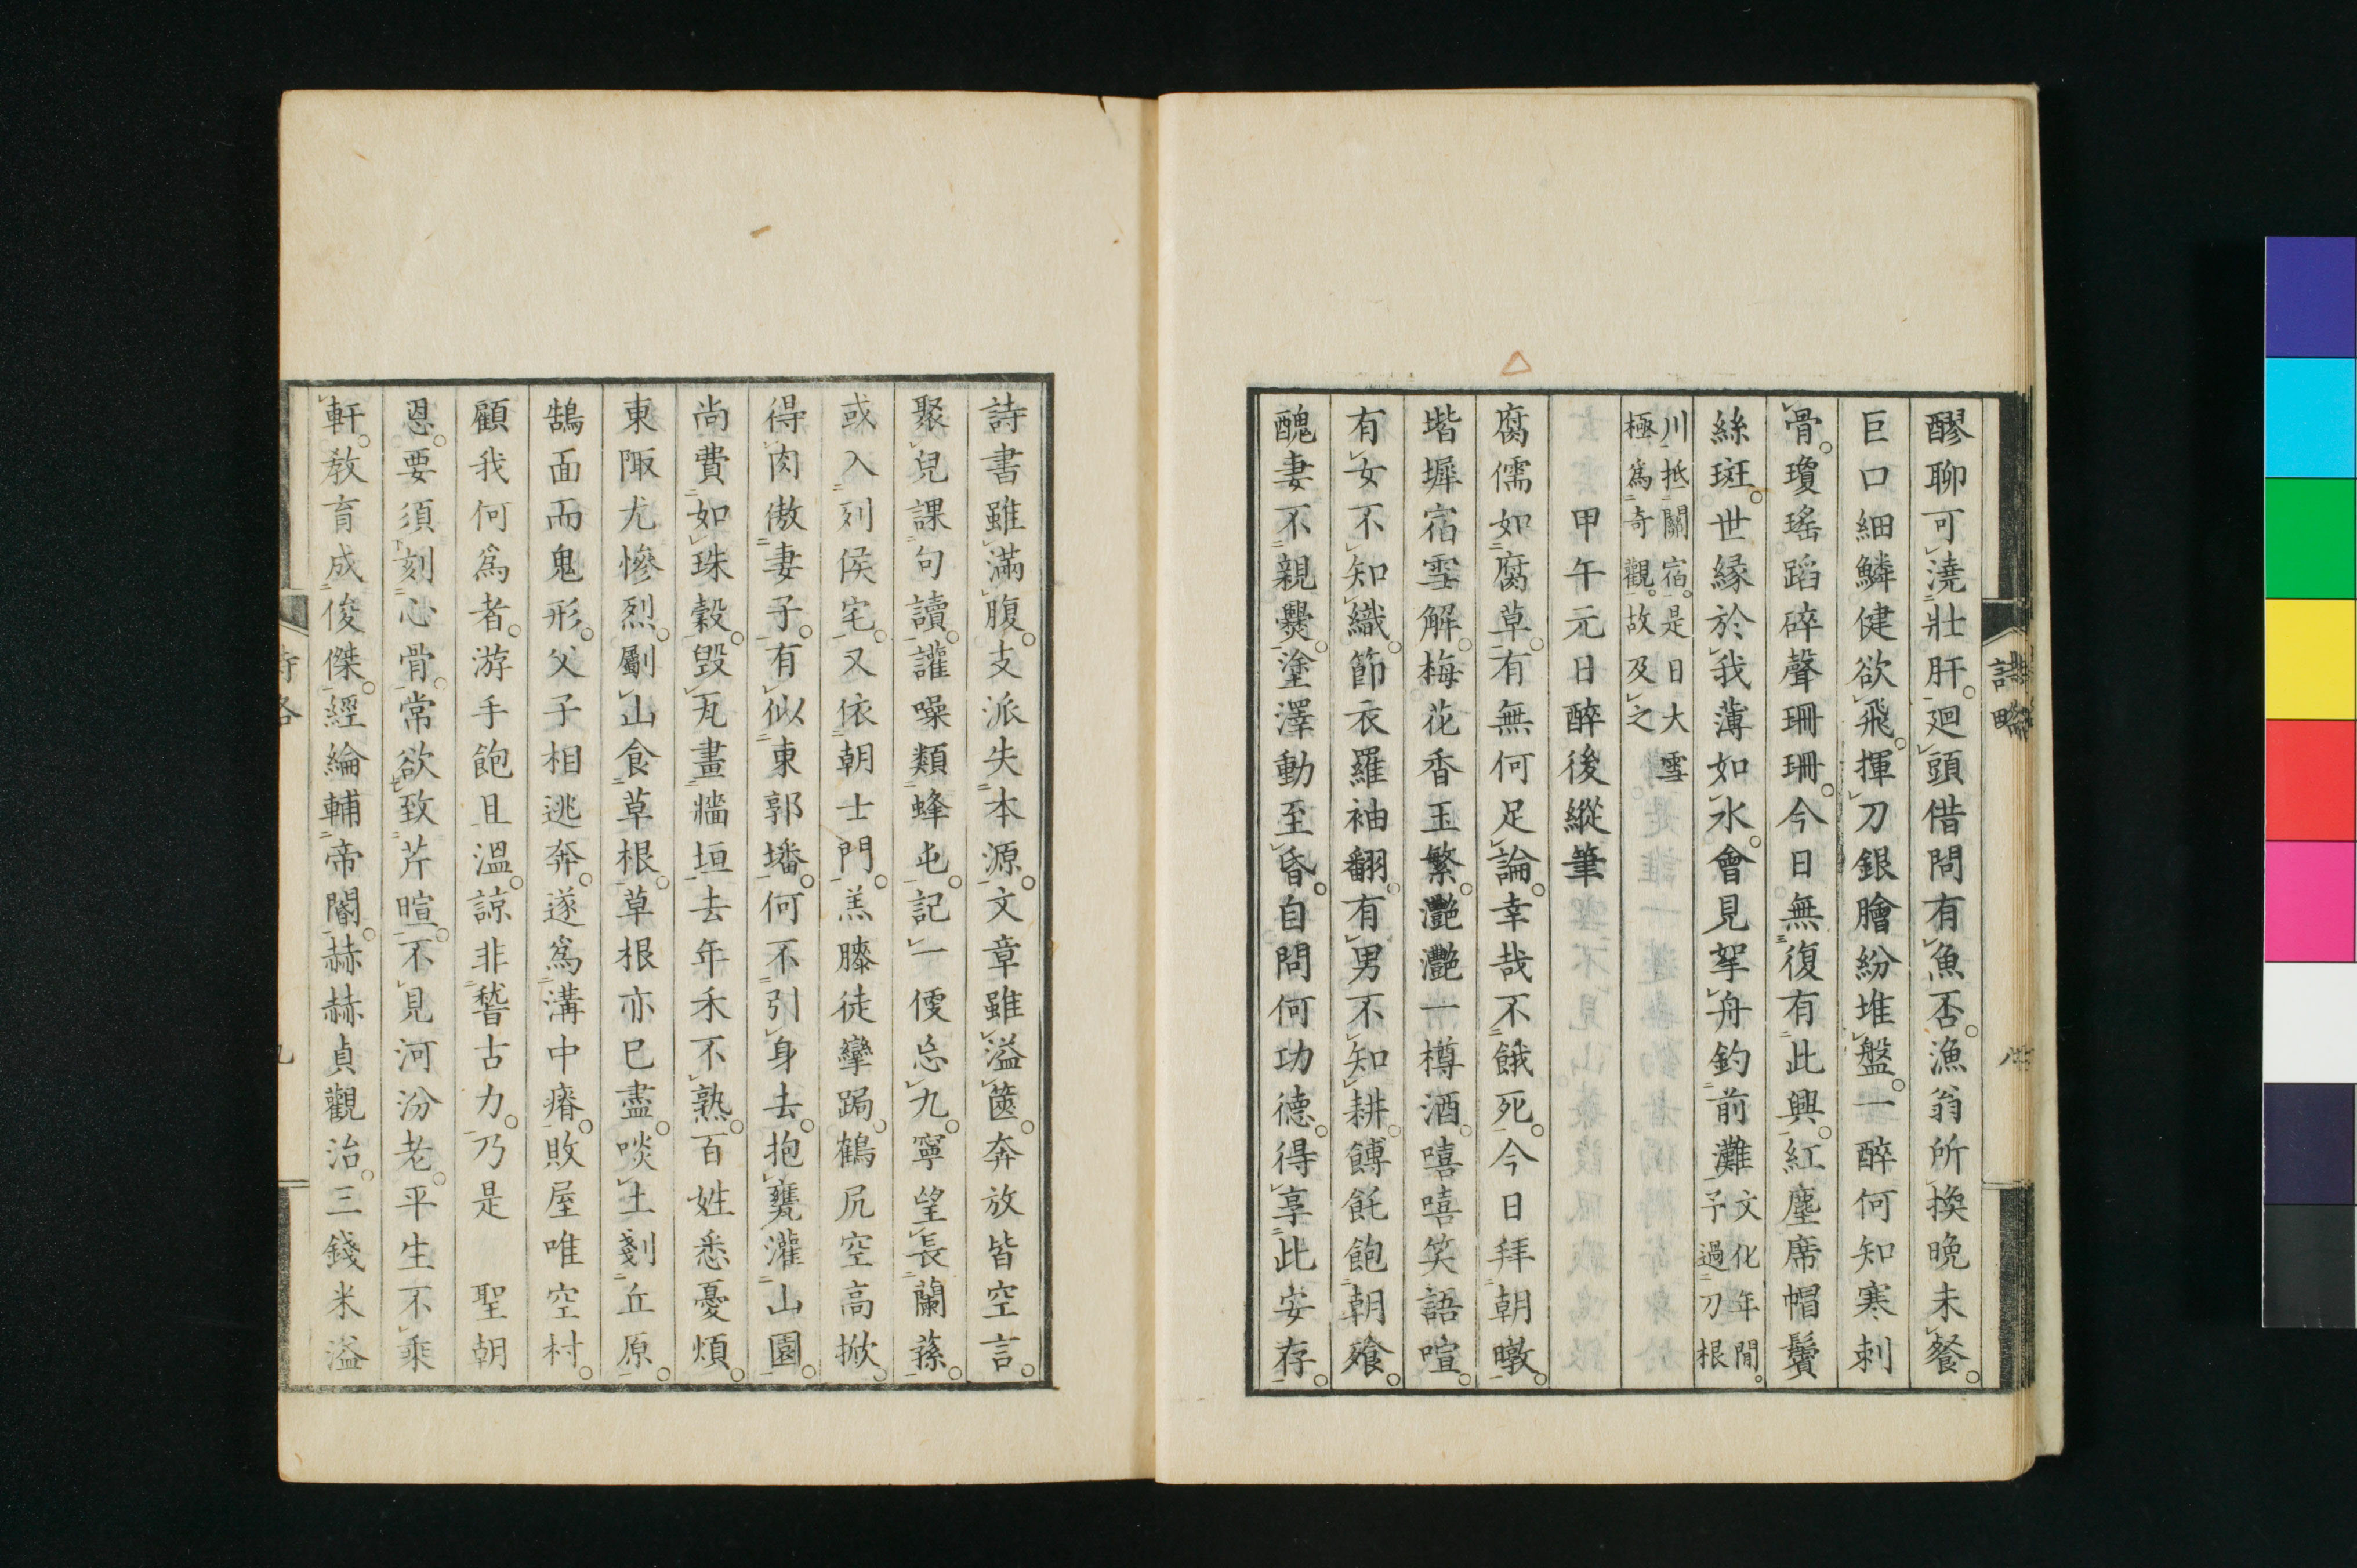 醪聊可澆壯肝。廻頭借問有魚否。漁翁所換晚未餐。
巨口細鱗健欲飛。揮刀銀膾紛堆盤。一醉何知寒刺
骨。瓊瑤蹈碎聲珊珊。今日無復有此興。紅塵席帽鬢
絲斑。世緣於我薄如水。會見拏舟釣前灘
文化年間。
予過刀根
川抵關宿。是日大雪
極爲奇觀。故及之
甲午元日醉後縱筆
腐儒如腐草。有無何足論。幸哉不餓死。今日拜朝暾。
堦墀宿雪解。梅花香玉繁。灧灧一樽酒。嘻嘻笑語喧。
有女不知織。節衣羅袖翻。有男不知耕。餺飥飽朝飱。
醜妻不親爨。塗澤動至昏。自問何功德。得享此安存。
詩略
八
詩書雖滿腹。支派失本源。文章雖溢篋。奔放皆空言。
聚兒課句讀。讙噪類蜂屯。記一便忘九。寧望長蘭蓀。
或入列侯宅。又依朝士門。羔膝徒攣跼。鶴尻空高掀。
得肉傲妻子。有似東郭墦。何不引身去。抱甕灌山園。
尚費如珠穀。毀瓦畫牆垣。去年禾不熟。百姓悉憂煩。
東陬尤慘烈。劚山食草根。草根亦已盡。啖土剗丘原。
鵠面而鬼形。父子相逃奔。遂爲溝中瘠。敗屋唯空村。
顧我何爲者。游手飽且溫。諒非稽古力。乃是　聖朝
恩。要須刻心骨。常欲致芹暄。不見河汾老。平生不乘
軒。教育成俊傑。經綸輔帝閽。赫赫貞觀治。三錢米溢
九